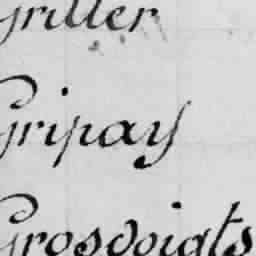 Griller
Gripay
Grosdoigts